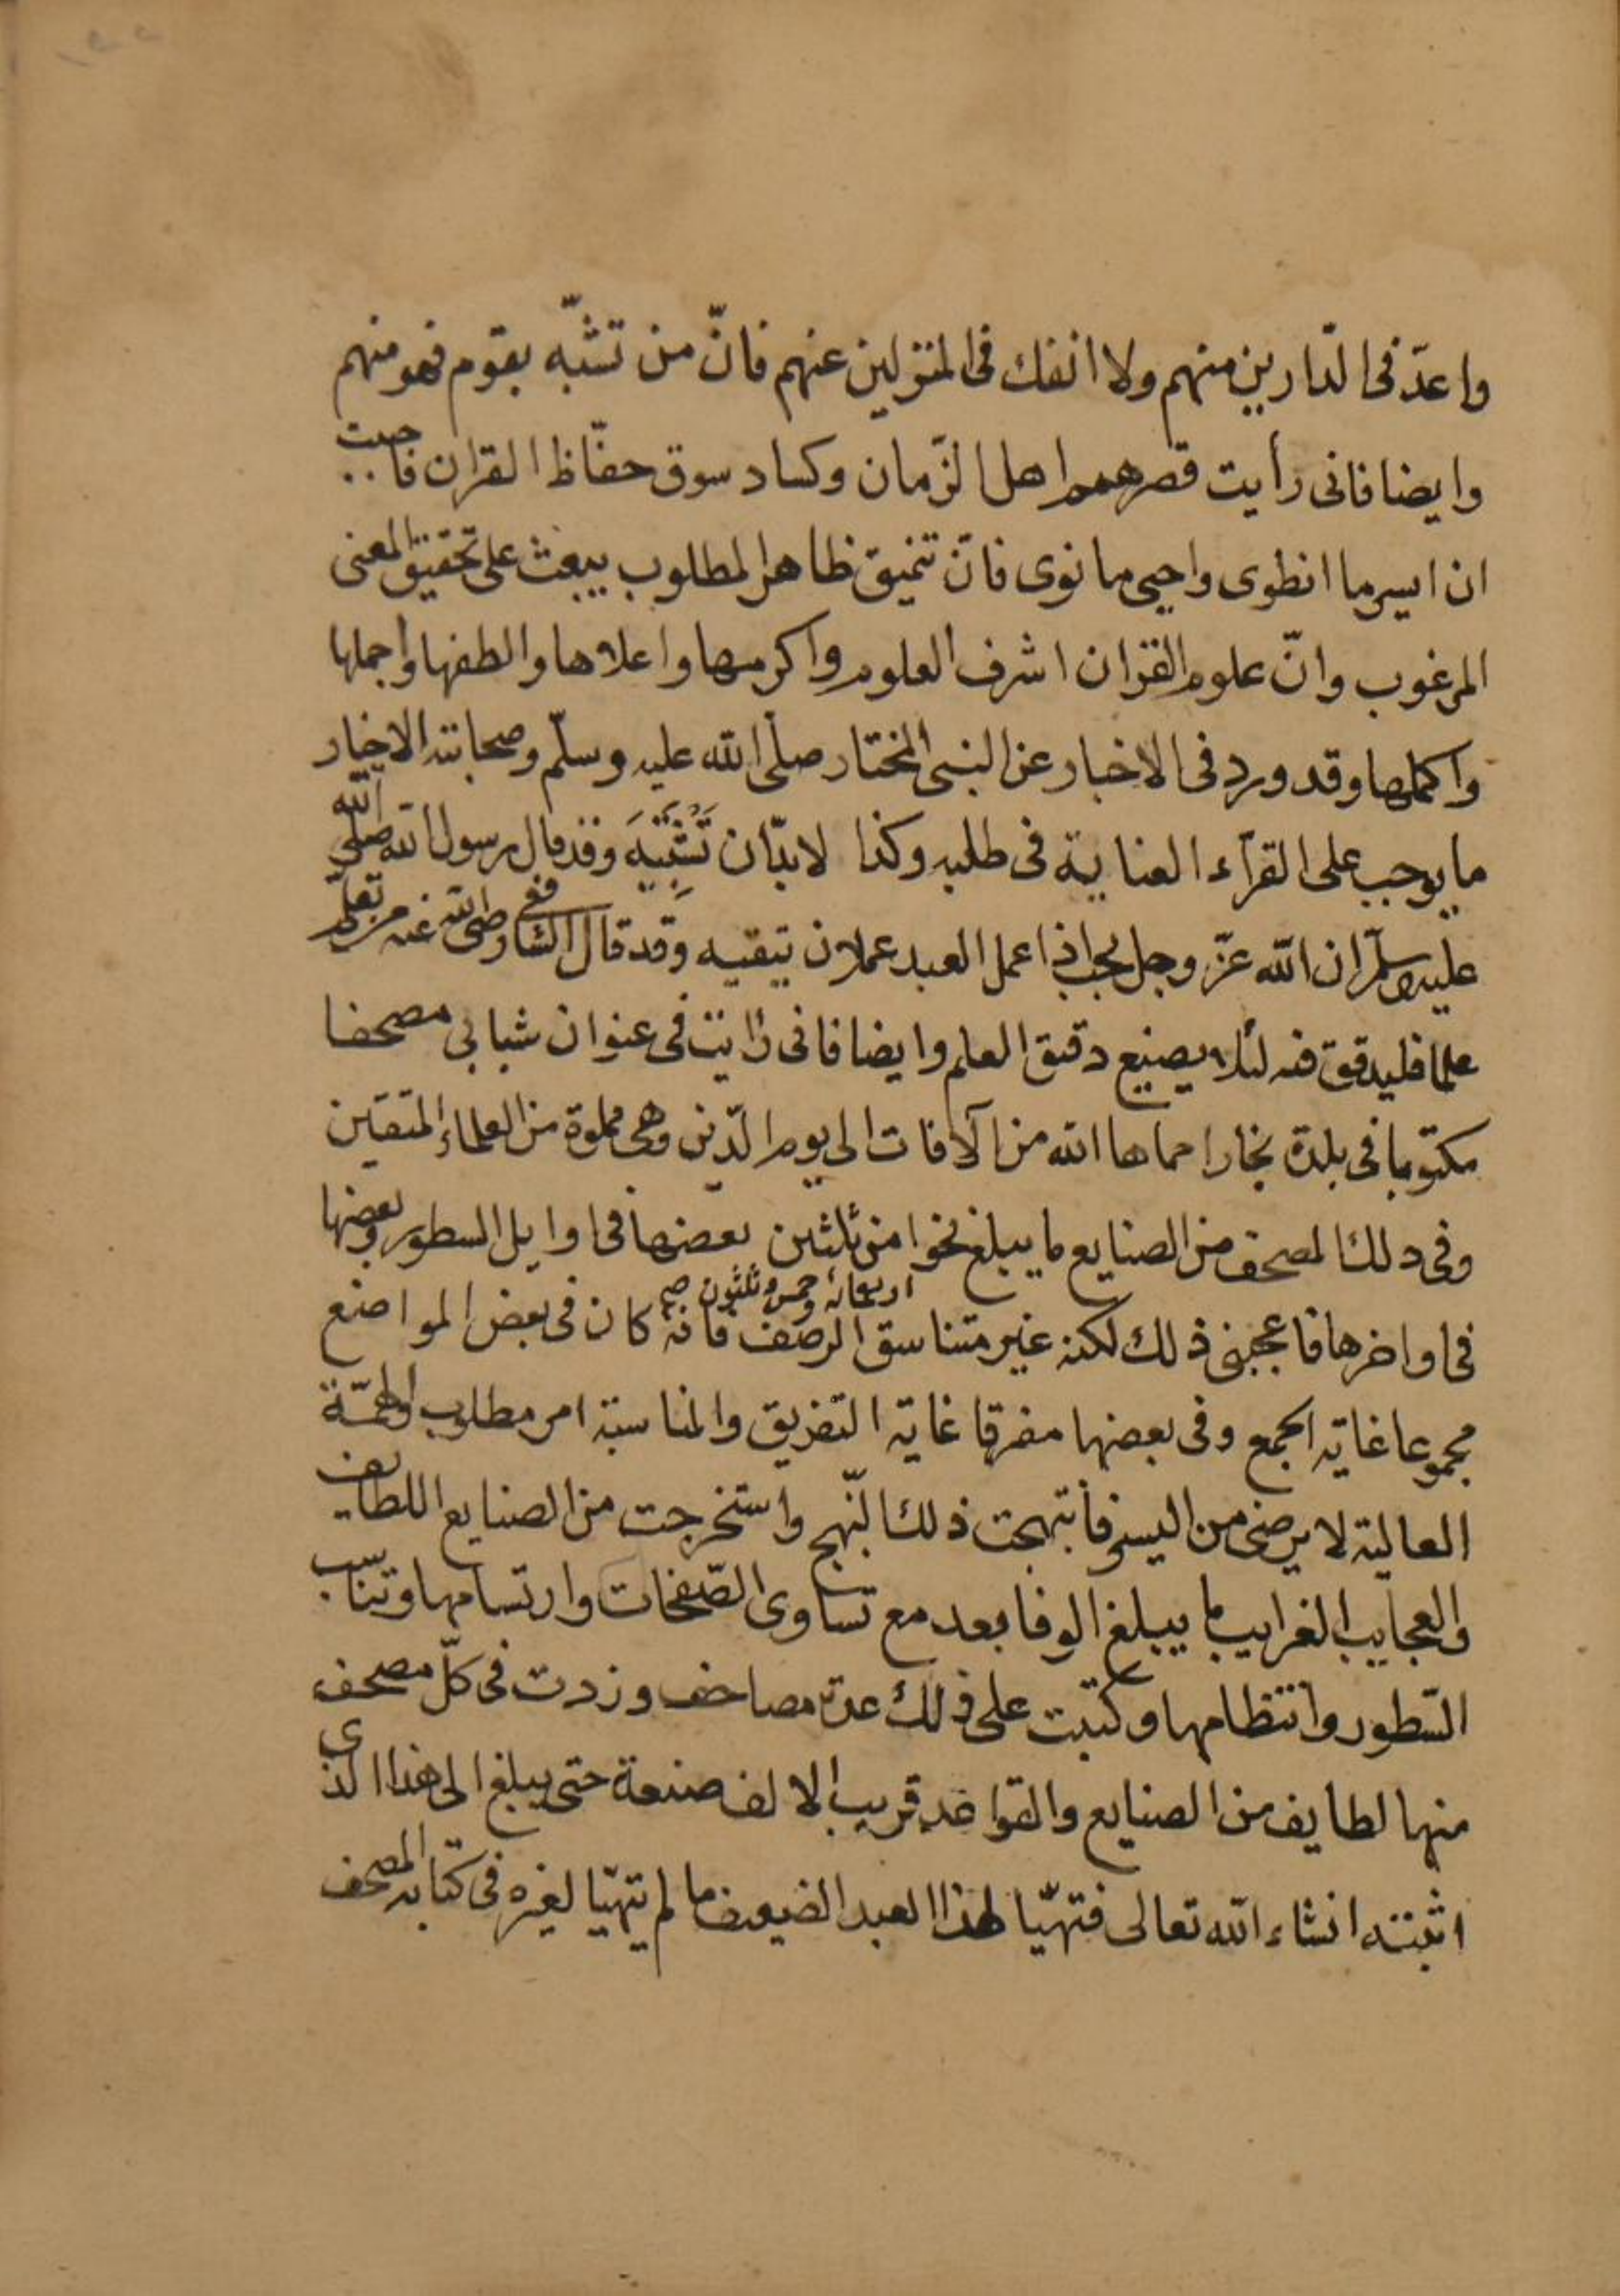 واعدّ فى الدّارين منهم ولا انفك فى المنزلين عنهم فانّ من تشبّه بقوم فهو منهم
وايضا فانى رأيت قصر همم اهل الزّمان وكساد سوق حفّاظ القران فاحببت
ان ايسر ما انطوى واحيى ما نوى فانّ تنميق ظاهر المطلوب يبعث على تحقيق المعنى
المرغوب وانّ علوم القران اشرف العلوم واكرمها واعلاها والطفها واجملها
واكملها وقد ورد فى الاخبار عن النبى المختار صلّى الله عليه وسلّم وصحابته الاخيار
ما يوجب على القرآء العناية فى طلبه وكذا لا بدّ ان وقد قال رسول الله صلى الله
عليه وسلّم ان الله عزّ وجل يحب اذا عمل العبد عملا ان يتقنه وقد قال الشافعى رضى الله عنه من تعلّم
علما فليدقق فيه لئلا يضيع دقيق العلم وايضا فانى رايت فى عنوان شبابى مصحفا
مكتوبا فى بلدة بخارا حماها الله من الآفات الى يوم الدّين وهى مملوة من العلماء المتقين
وفى ذلك المصحف من الصنايع ما يبلغ نحوا من ثلثين بعضها فى اوايل السطور وبعضها
اربعمائة وخمس وثلثون صح
فى اواخرها فاعجبنى ذلك لكنه غير متناسق الرصف فانه كان فى بعض المواضع
مجموعا غاية الجمع وفى بعضها مفرقا غاية التفريق والمناسبة امر مطلوب والهمّة
العالية لا يرضى من اليسير فانتهجت ذلك النّهج واستخرجت من الصنايع اللطايف
والعجايب الغرايب ما يبلغ الوفا بعد مع تساوى الصّفحات وارتسامها وتناسب
السّطور وانتظامها وكتبت على ذلك عدة مصاحف وزدت فى كلّ مصحف
منها لطايف من الصنايع والقواعد قريب الالف صنعة حتى يبلغ الى هذا الذى
اثبته انشاء الله تعالى فتهيّا لهذا العبد الضعيف ما لم يتهيّا لغيره فى كتابة المصحف